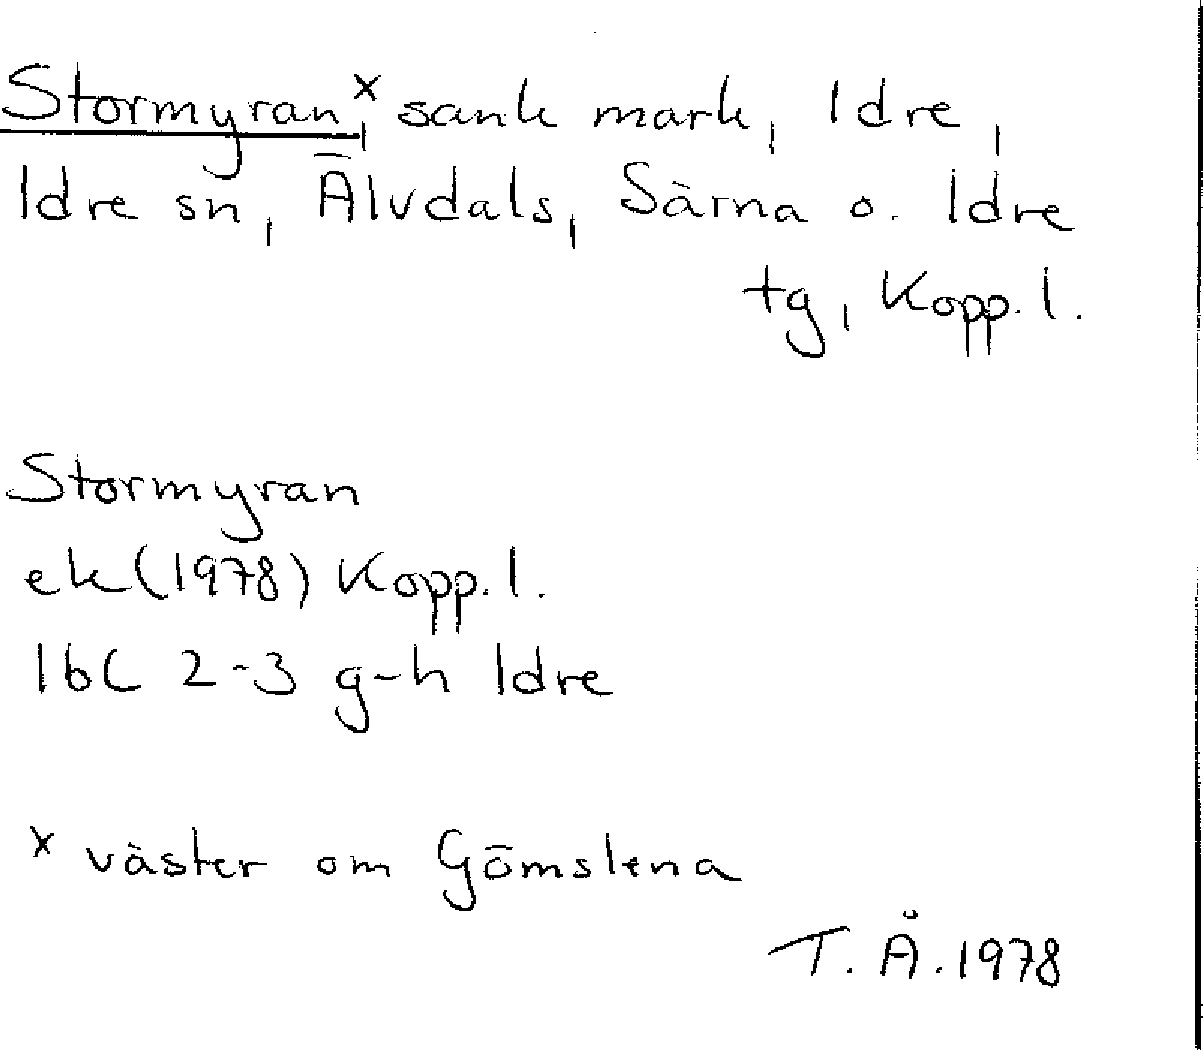 Stormyran,ˣ sank mark, Idre,
Idre sn, Älvdals, Särna o. Idre
tg, Kopp. l.
Stormyran
ek (1978) Kopp. l.
16C 2-3 g-h Idre
x väster om Gömslena
T. Å. 1978